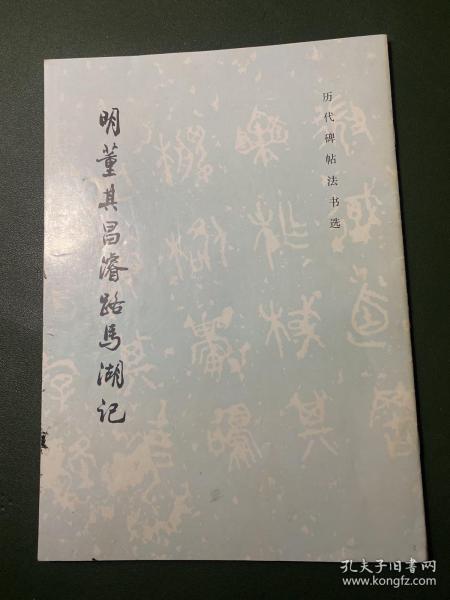 历代碑帖法书选
明董其昌濬路马湖记
孔夫子旧书网
www.kongfz.com